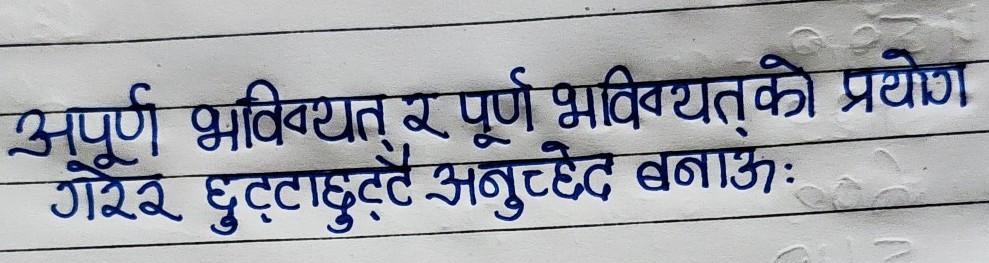 अपूर्ण भविष्यत् र पूर्ण भविष्यत्को प्रयोग
गरेर छुट्टाछुट्टै अनुच्छेद बनाऊः